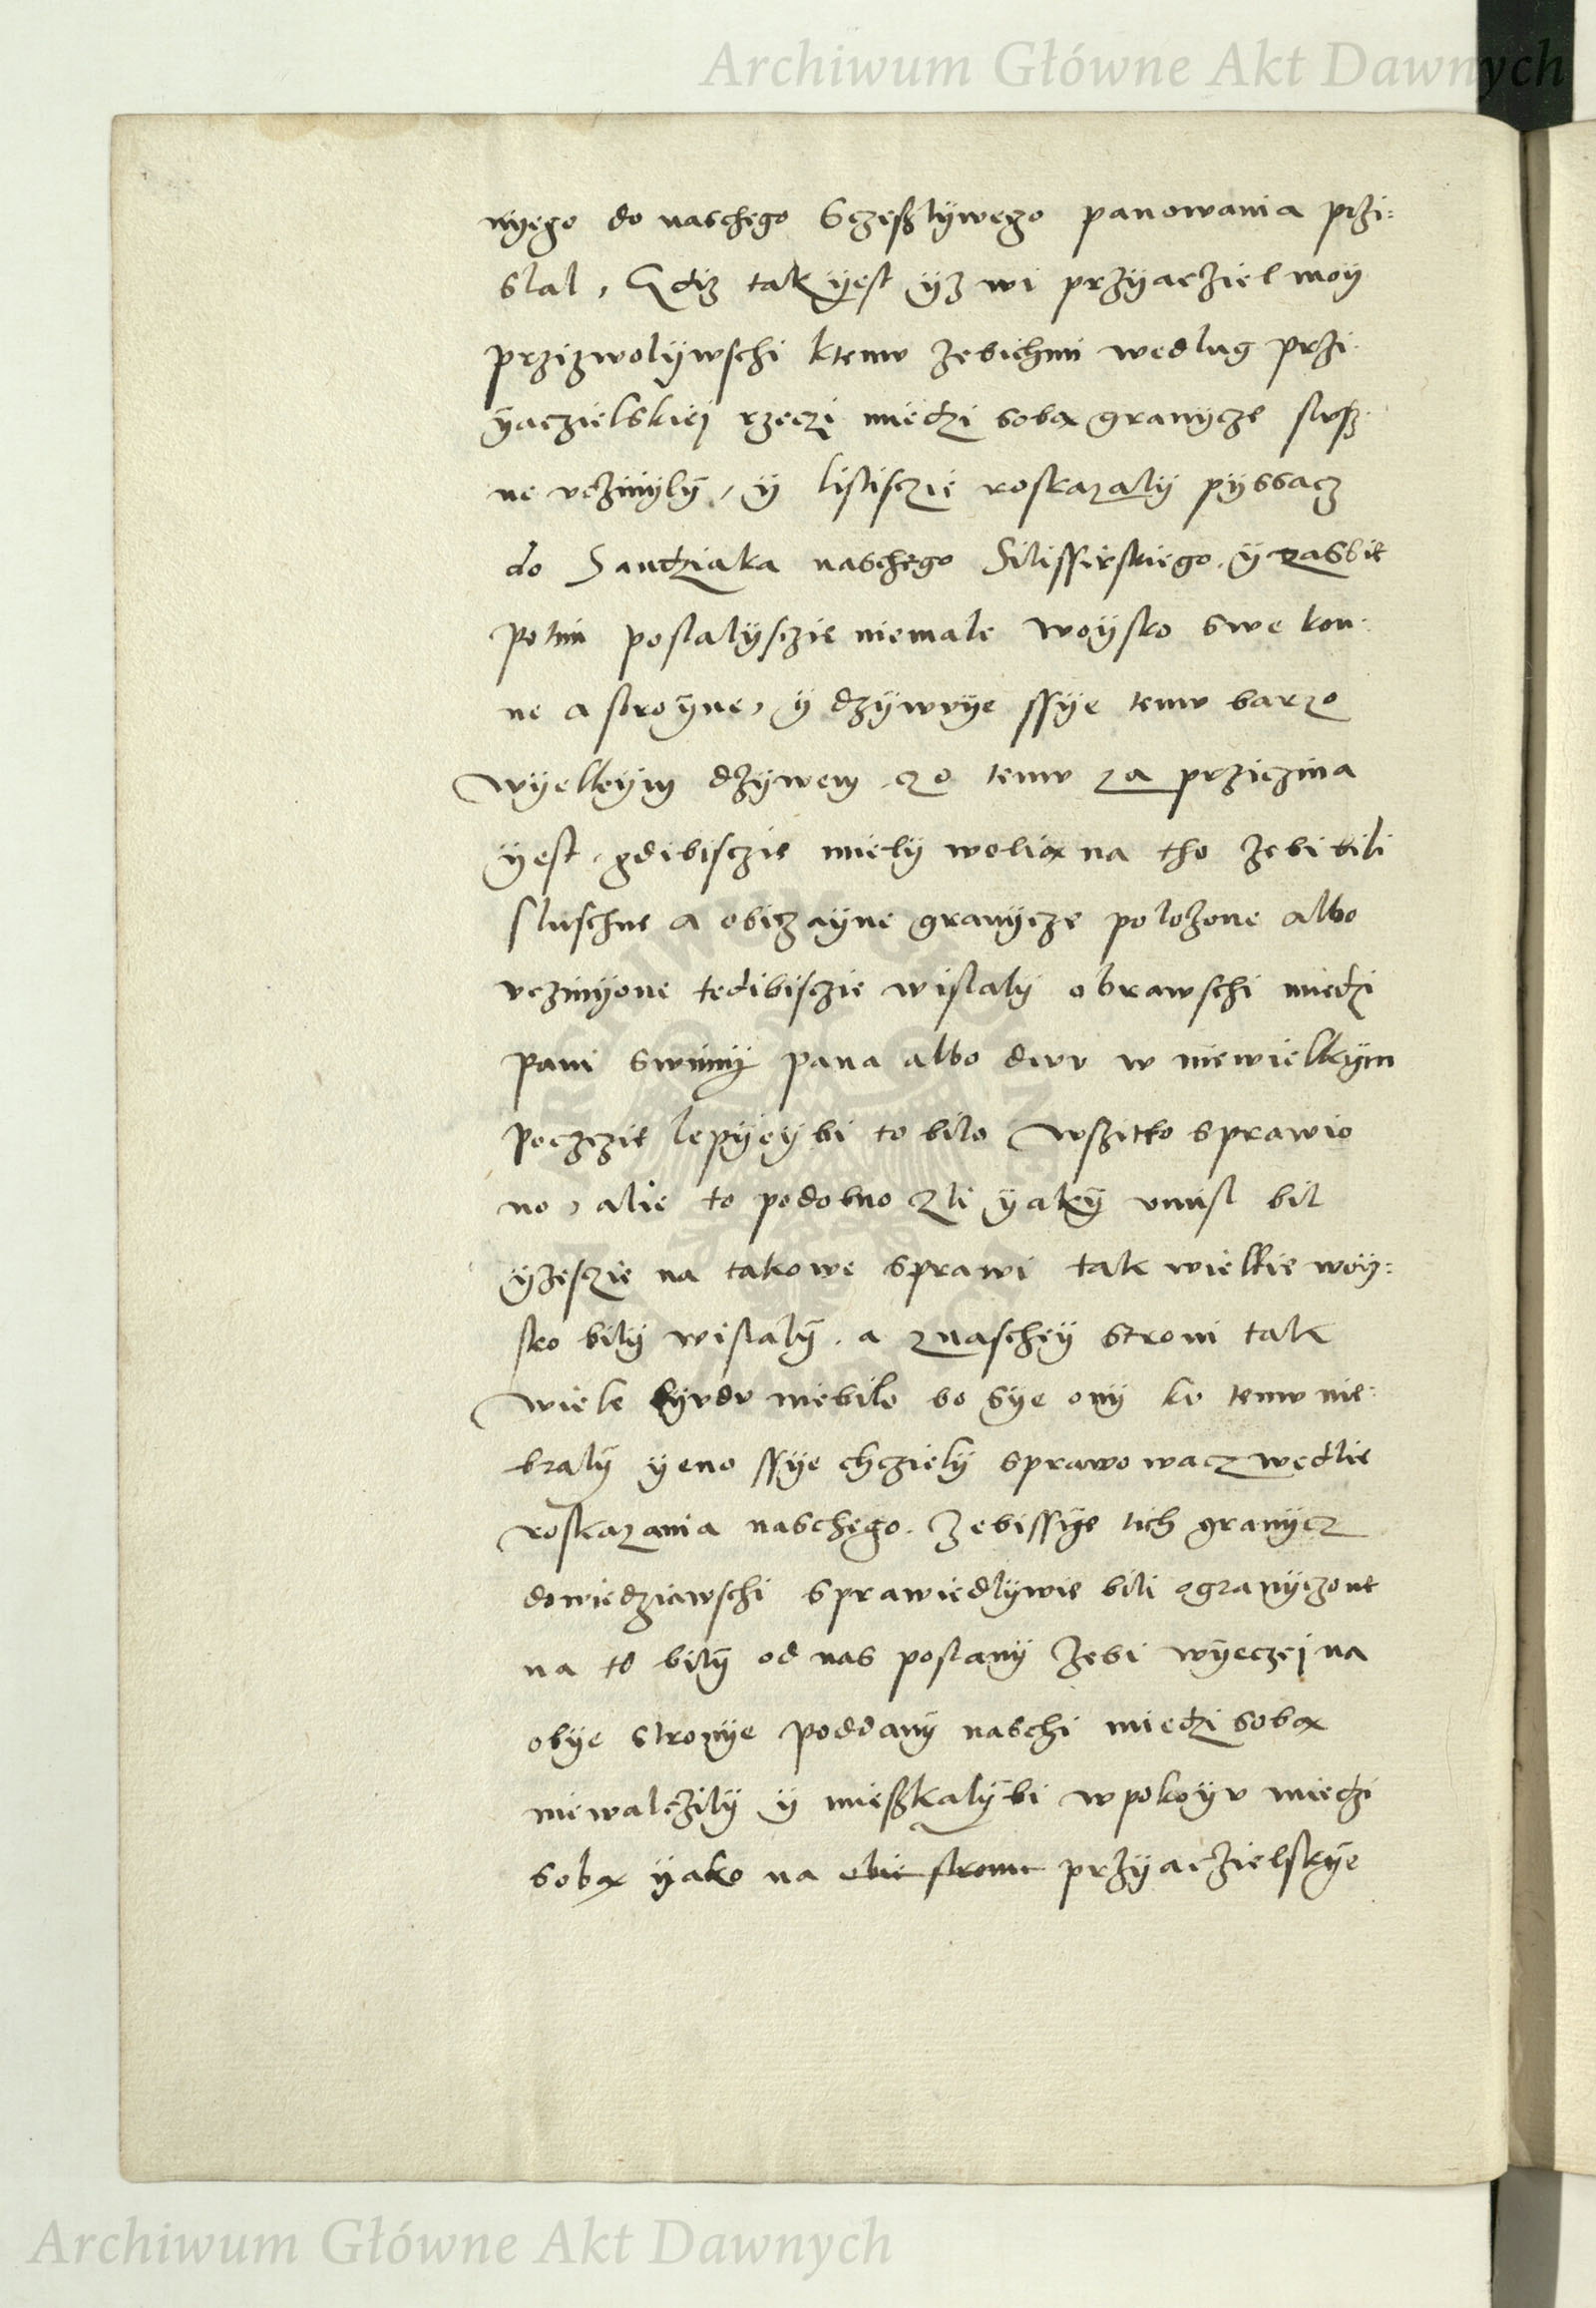 Archiwum Główne Akt Dawnych
nÿego do naschego Sczeßlÿwego panowania przi=
slal, Gdiz tak ÿest ÿz wi przÿacziel moÿ
przizwolÿwschi ktemv zebichmi wedlug przi
ÿaczielskiej rzeczi miedzi sobą granÿcze slvß
ne vczinÿlÿ, ÿ listiszie roskazalÿ pÿssacz
do Sandziaka naschego Silissirskiego. ÿ zassie
potim poslalÿsczie niemale woÿsko swe kon:
ne a stroÿne, ÿ dzÿwvÿe ssÿe temv barzo
wÿelkÿm dzÿwem, czo temv za prziczina
ÿest, gdibisczie mielÿ wolią na tho zebi bili
sluschne a obiczaÿne granÿcze polozone albo
vczinÿone tedibisczie wislalÿ obrawschi miedzi
pani swimÿ pana albo dwv w niewielkÿm
poczczie lepÿeÿ bi to bilo wszitko sprawio
no, alie to podobno zli ÿakÿ vmisl bil
ÿzesczie na takowe sprawi tak wielkie woÿ=
sko bilÿ wislalÿ. a znascheÿ stroni tak
wiele lÿvdv niebilo bo sÿe onÿ kv temv nie:
bralÿ ÿeno ssÿe chczielÿ sprawowacz wedlie
roskazania naschego. Zebissÿe tich granÿcz
dowiedziawschi sprawiedlÿwie bili ogranÿczone
na to bilÿ od nas poslanÿ zebi wÿeczej na
obÿe stronÿe poddanÿ naschi miedzi sobą
niewalczilÿ ÿ mießkalÿbi w pokoÿv miedzi
sobą ÿako na obie stronie przÿaczielskÿe
Archiwum Główne Akt Dawnych